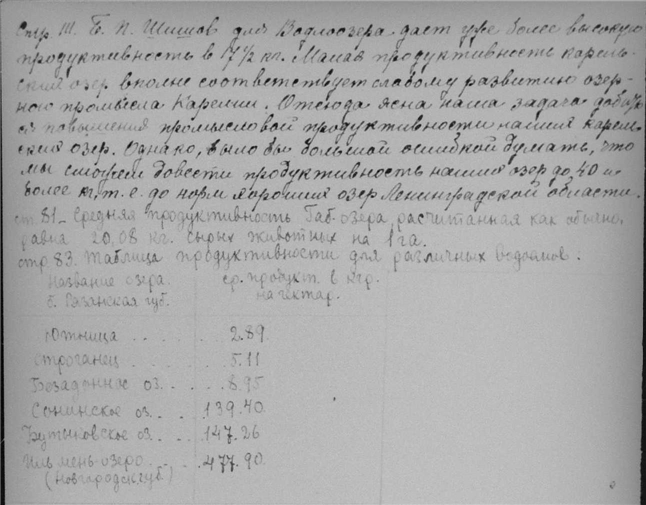 Стр. III. Б. П. Шишов для Водлоозера дает уже более высокую
продуктивность в 17 1/2 кг. Малая продуктивность карель-
ских озер вполне соответствует слабому развитию озер-
ного промысла Карелии. Отсюда ясна наша задача
повышения промысловой продуктивности наших карель-
ских озер. Однако, было бы большой ошибкой думать, что
мы сможем довести продуктивность наших озер до 40 и
более кг, т.е. до норм хороших озер Ленинградской области.
ст. 81_ Средняя продуктивность Габ-озера расчитанная как обычно
равна 20,08 кг. сырых животных на 1 га.
стр 83. Таблица продуктивности для различных водоемов.
Название озера. ср. продукт. в кгр.
б. Рязанская губ. на гектар.
Ютница . . . . 2.89
Строганец . . . . 5.11
Безадонное оз. . . . 8.95
Сонинское оз. . . . 139.40
Бутыковское оз. . . . 147.26
Ильмень-озеро . . . 477.90
(Новгородск губ.)